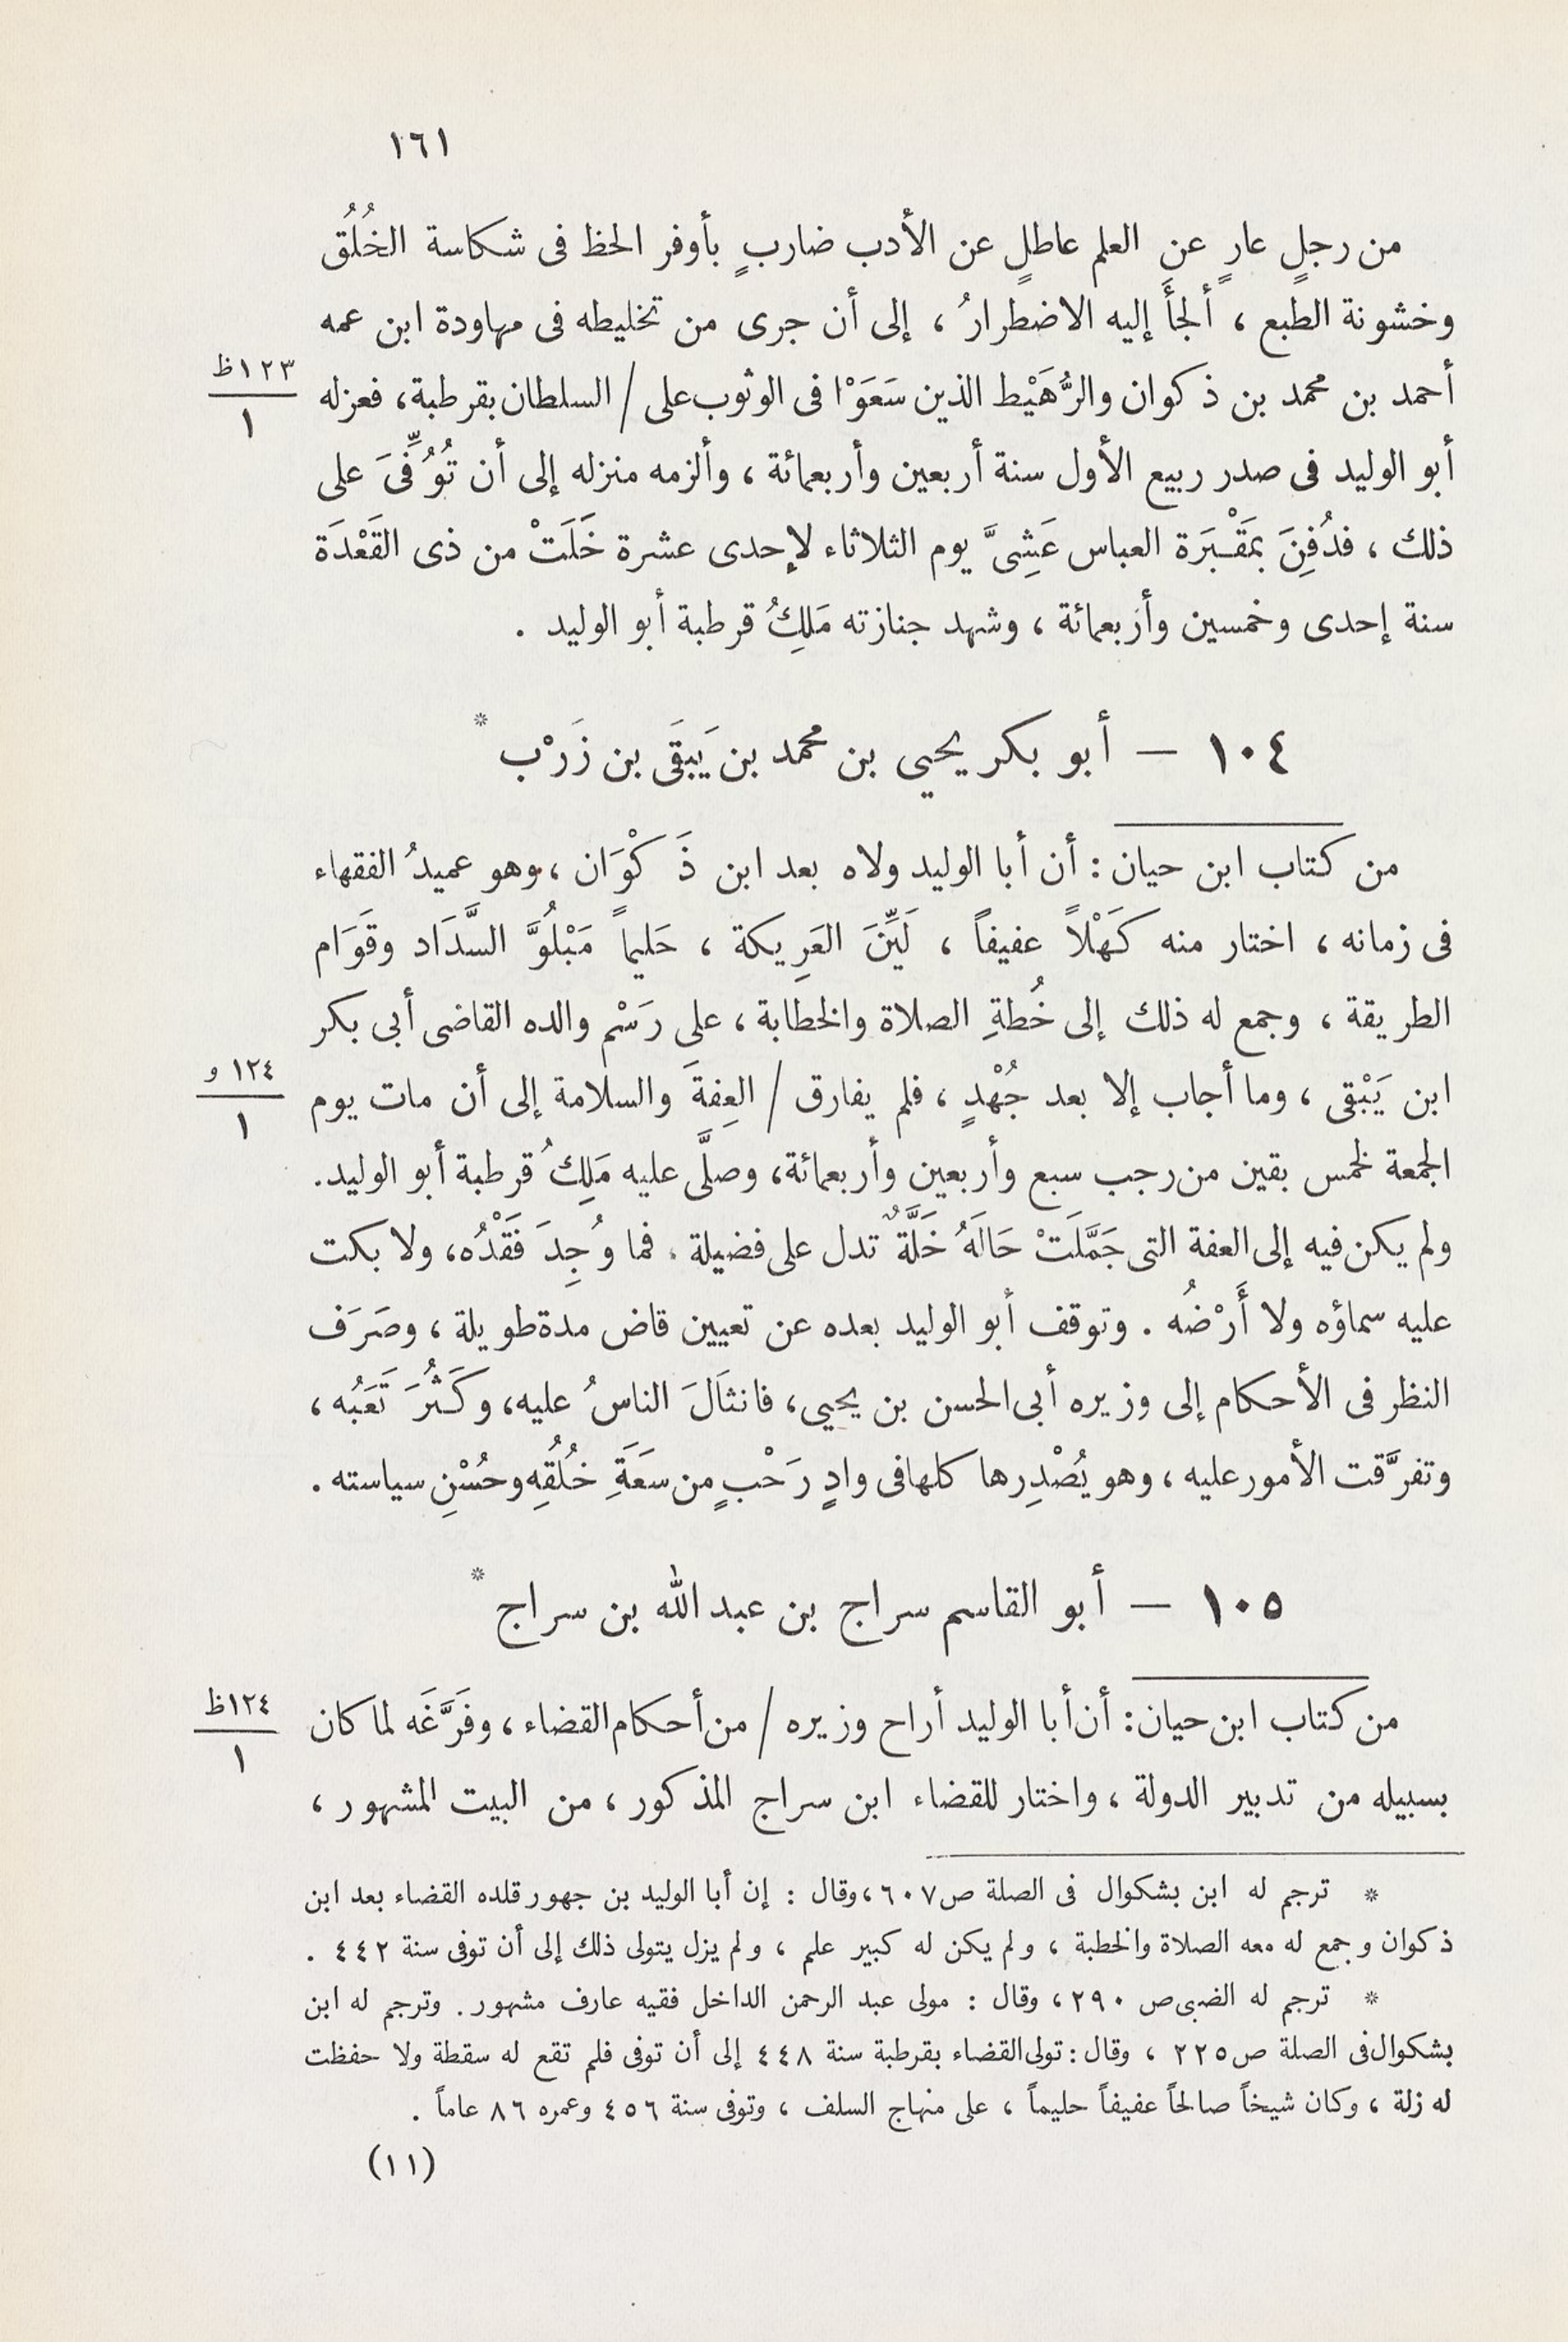 ١٦١
من رجلٍ عارٍ عن العلم عاطلٍ عن الأدب ضاربٍ بأوفر الحظ فى شكاسة الخُلُق
وخشونة الطبع ، ألجأَ إليه الاضطرارُ ، إلى أن جرى من تخليطه فى مهاودة ابن عمه
أحمد بن محمد بن ذكوان والرُّهَيْط الذين سَعَوْا فى الوثوب على / السلطان بقرطبة، فعزله
١٢٣ظ
١
أبو الوليد فى صدر ربيع الأول سنة أربعين وأربعمائة ، وألزمه منزله إلى أن تُوُفِّىَ على
ذلك ، فدُفِنَ بمَقْبَرَة العباس عَشِىَّ يوم الثلاثاء لإحدى عشرة خَلَتْ من ذى القَعْدَة
سنة إحدى وخمسين وأربعمائة ، وشهد جنازته مَلِكُ قرطبة أبو الوليد .
١٠٤ — أبو بكر يحيى بن محمد بن يَبقَى بن زَرْب *
من كتاب ابن حيان : أن أبا الوليد ولاه بعد ابن ذَكْوَان ، وهو عميدُ الفقهاء
فى زمانه ، اختار منه كَهْلاً عفيفاً ، لَيِّنَ العَرِيكة ، حَليماً مَبْلُوَّ السَّدَاد وقَوَام
الطريقة ، وجمع له ذلك إلى خُطةِ الصلاة والخطابة ، على رَسْم والده القاضى أبى بكر
ابن يَبْقى ، وما أجاب إلا بعد جُهْدٍ ، فلم يفارق / العِفةَ والسلامة إلى أن مات يوم
١٢٤ و
١
الجمعة لخمس بقين من رجب سبع وأربعين وأربعمائة، وصلَّى عليه مَلِكُ قرطبة أبو الوليد.
ولم يكن فيه إلى العفة التى جَمَّلَتْ حَالَهُ خَلَّةٌ تدل على فضيلة ، فما وُجِدَ فَقْدُه، ولا بكت
عليه سماؤه ولا أَرْضُه . وتوقف أبو الوليد بعده عن تعيين قاض مدة طويلة ، وصَرَف
النظر فى الأحكام إلى وزيره أبى الحسن بن يحيى، فانثَالَ الناسُ عليه، وكَثُرَ تَعَبُه ،
وتفرَّقت الأمور عليه ، وهو يُصْدِرها كلها فى وادٍ رَحْبٍ من سَعَةِ خُلُقِه وحُسْنِ سياسته .
١٠٥ — أبو القاسم سراج بن عبد الله بن سراج *
من كتاب ابن حيان: أن أبا الوليد أراح وزيره / من أحكام القضاء ، وفَرَّغَه لما كان
١٢٤ظ
١
بسبيله من تدبير الدولة ، واختار للقضاء ابن سراج المذكور ، من البيت المشهور ،
* ترجم له ابن بشكوال فى الصلة ص ٦٠٧ ، وقال : إن أبا الوليد بن جهور قلده القضاء بعد ابن
ذكوان وجمع له معه الصلاة والخطبة ، ولم يكن له كبير علم ، ولم يزل يتولى ذلك إلى أن توفى سنة ٤٤٢ .
* ترجم له الضبى ص ٢٩٠ ، وقال : مولى عبد الرحمن الداخل فقيه عارف مشهور . وترجم له ابن
بشكوال فى الصلة ص ٢٢٥ ، وقال : تولى القضاء بقرطبة سنة ٤٤٨ إلى أن توفى فلم تقع له سقطة ولا حفظت
له زلة ، وكان شيخاً صالحاً عفيفاً حليماً ، على منهاج السلف ، وتوفى سنة ٤٥٦ وعمره ٨٦ عاماً .
(١١)